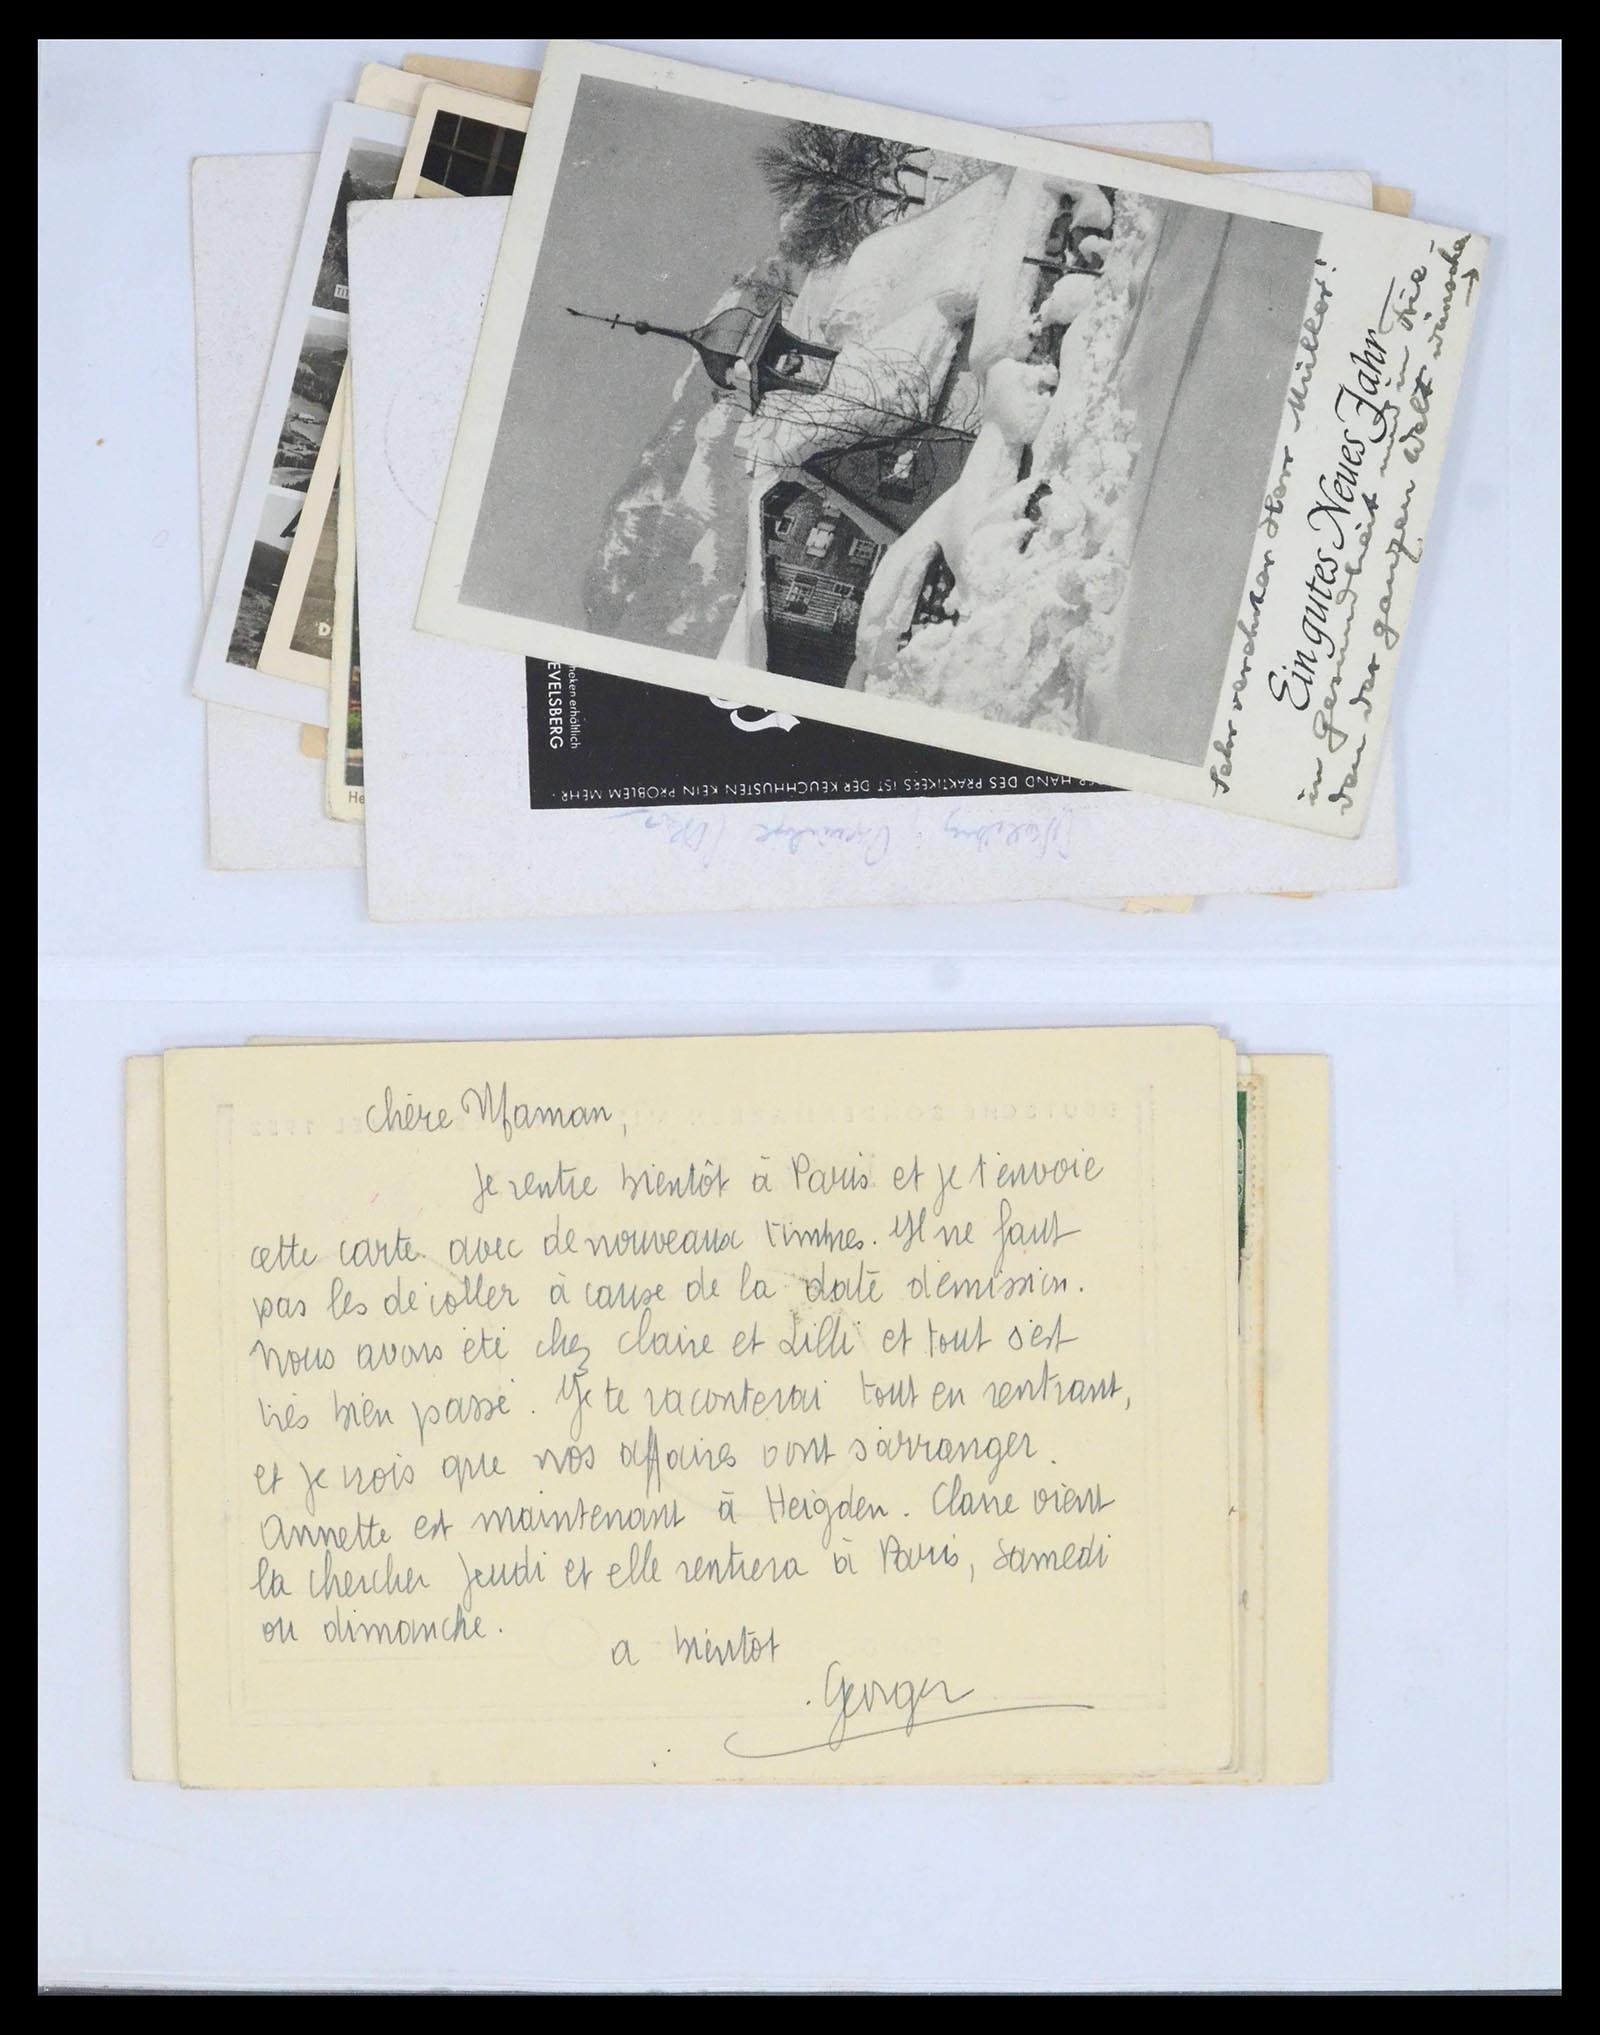 Sehr verehrter Herr Müller!
Ein gutes Neues Jahr
in Gesundheit und in Frie-
den der ganzen Welt wünschen
→
TIT
D
He
neken erhältlich
EVELSBERG
ER HAND DES PRAKTIKERS IST DER KEUCHHUSTEN KEIN PROBLEM MEHR ·
chère Maman,
Je rentre bientôt à Paris et je t'envoie
cette carte avec de nouveaux timbres. Il ne faut
pas les décoller à cause de la date d'émission.
Nous avons été chez Claire et Lilli et tout s'est
très bien passé. Je te raconterai tout en rentrant,
et je crois que nos affaires vont s'arranger.
Annette est maintenant à Heigden. Claire vient
la chercher Jeudi et elle rentrera à Paris, Samedi
ou dimanche.
a bientôt